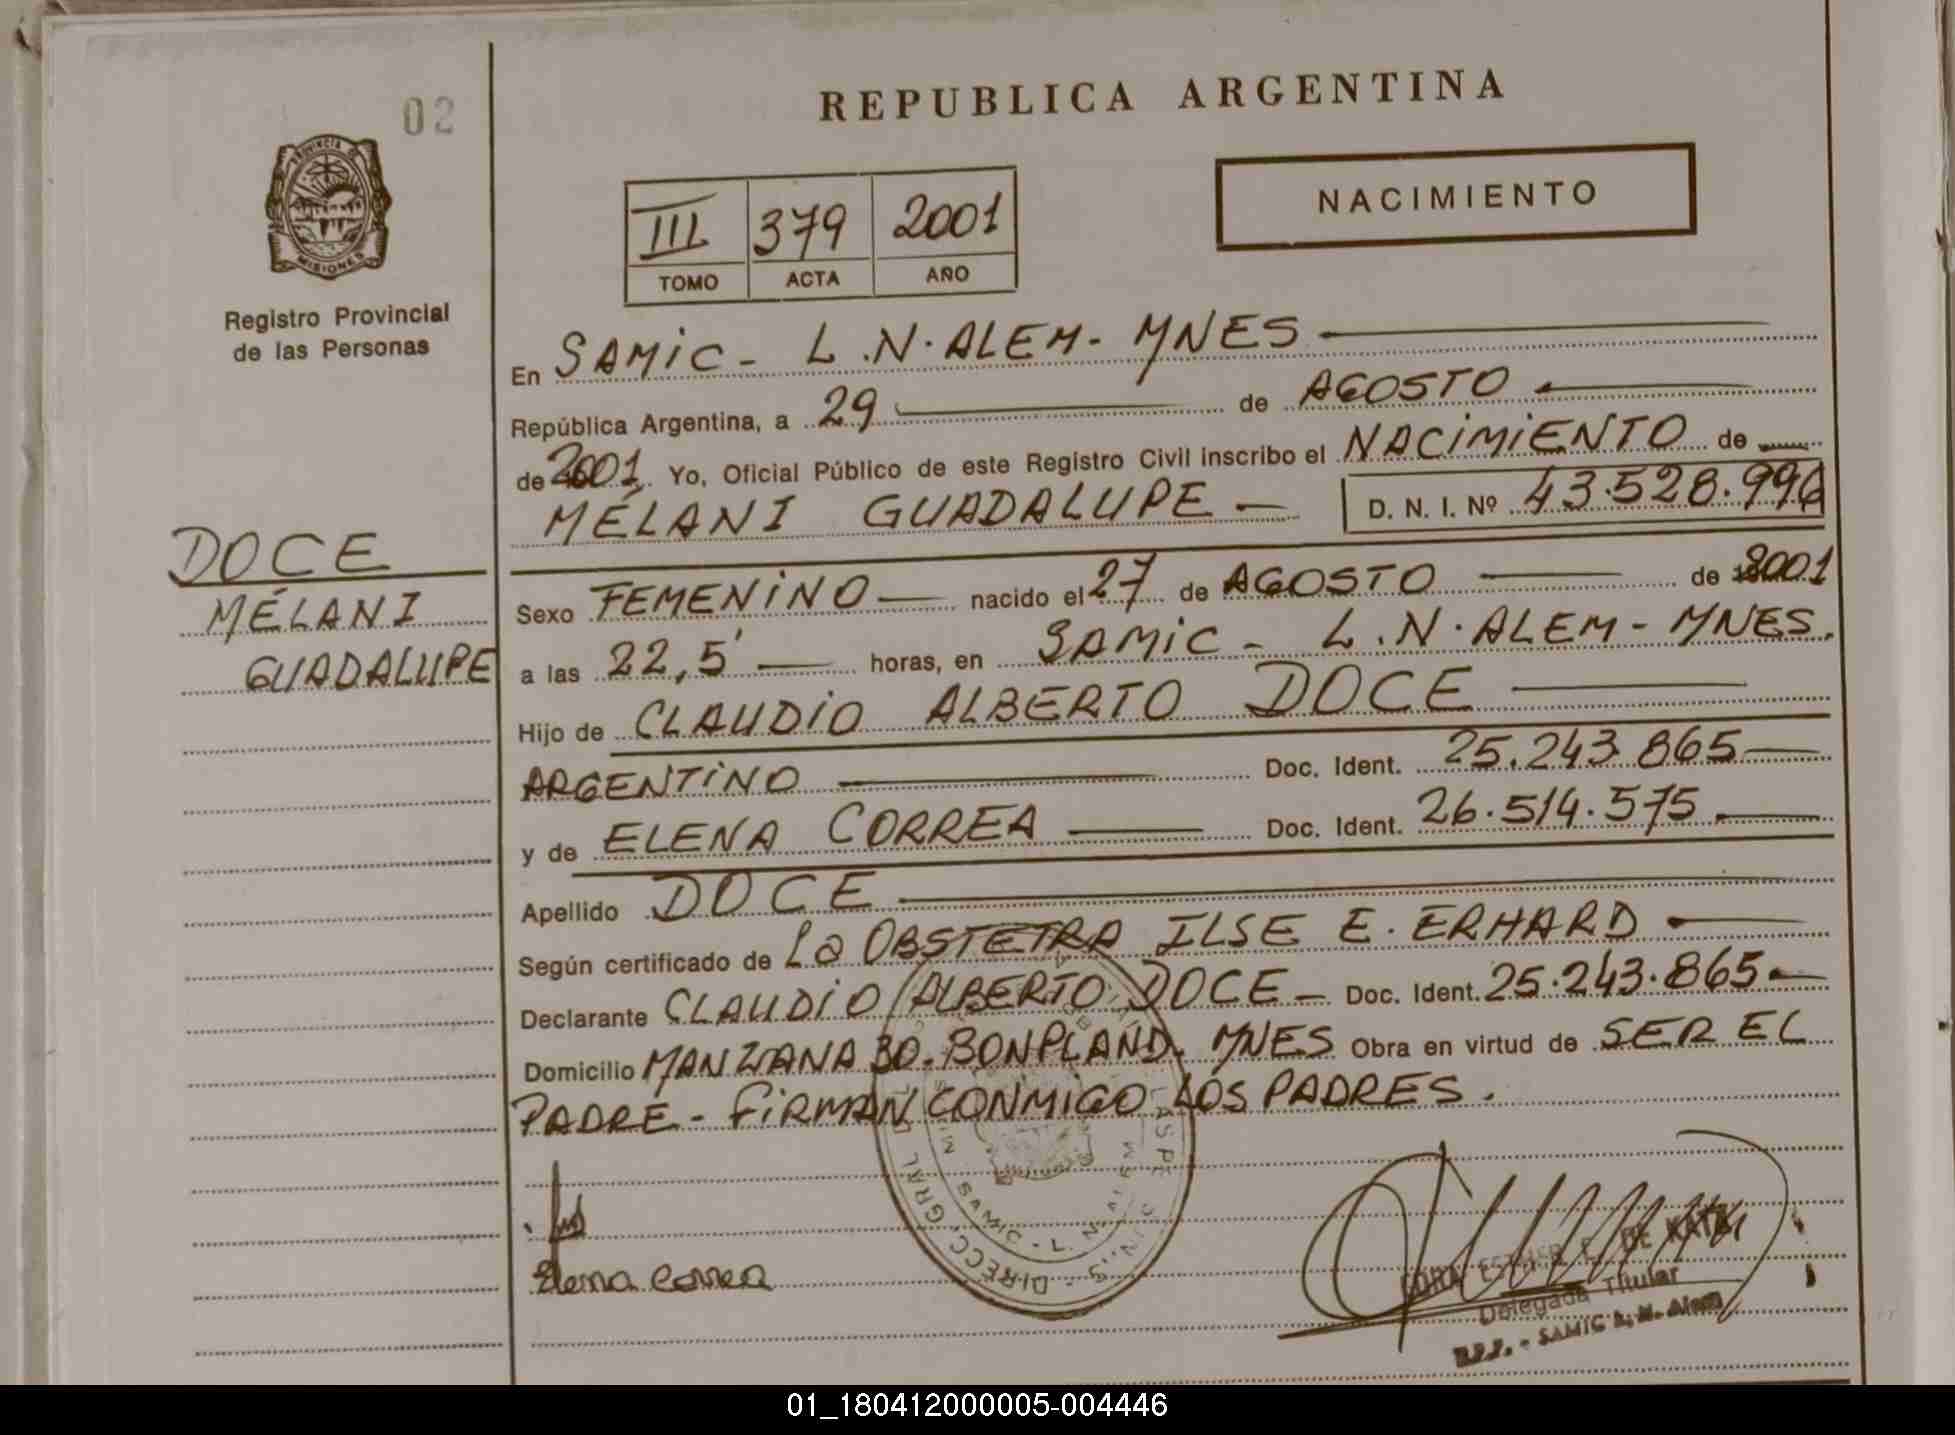 02
REPUBLICA ARGENTINA
PROVINCIA DE
MISIONES
Registro Provincial
de las Personas
NACIMIENTO
III 379 2001
TOMO ACTA AÑO
En SAMIC - L.N. ALEM - MNES
República Argentina, a 29 de AGOSTO
de 2001. Yo, Oficial Público de este Registro Civil inscribo el NACIMIENTO de
MÉLANI GUADALUPE - D. N. I. Nº 43.528.996
DOCE
MÉLANI
GUADALUPE
Sexo FEMENINO nacido el 27 de AGOSTO de 2001
a las 22,5' horas, en SAMIC - L.N. ALEM - MNES.
Hijo de CLAUDIO ALBERTO DOCE
ARGENTINO Doc. Ident. 25.243.865
y de ELENA CORREA Doc. Ident. 26.514.575
Apellido DOCE
Según certificado de La OBSTETRA ILSE E. ERHARD
Declarante CLAUDIO ALBERTO DOCE - Doc. Ident. 25.243.865
Domicilio MANZANA 30 - BONPLAND. MNES Obra en virtud de SER EL
PADRE - FIRMAN CONMIGO LOS PADRES.
Elena Correa
DIRECC. GRAL. SAMIC - L. N.
DE KATZ
Delegada Titular
R.P.P. - SAMIC L. N. Alem
01_180412000005-004446